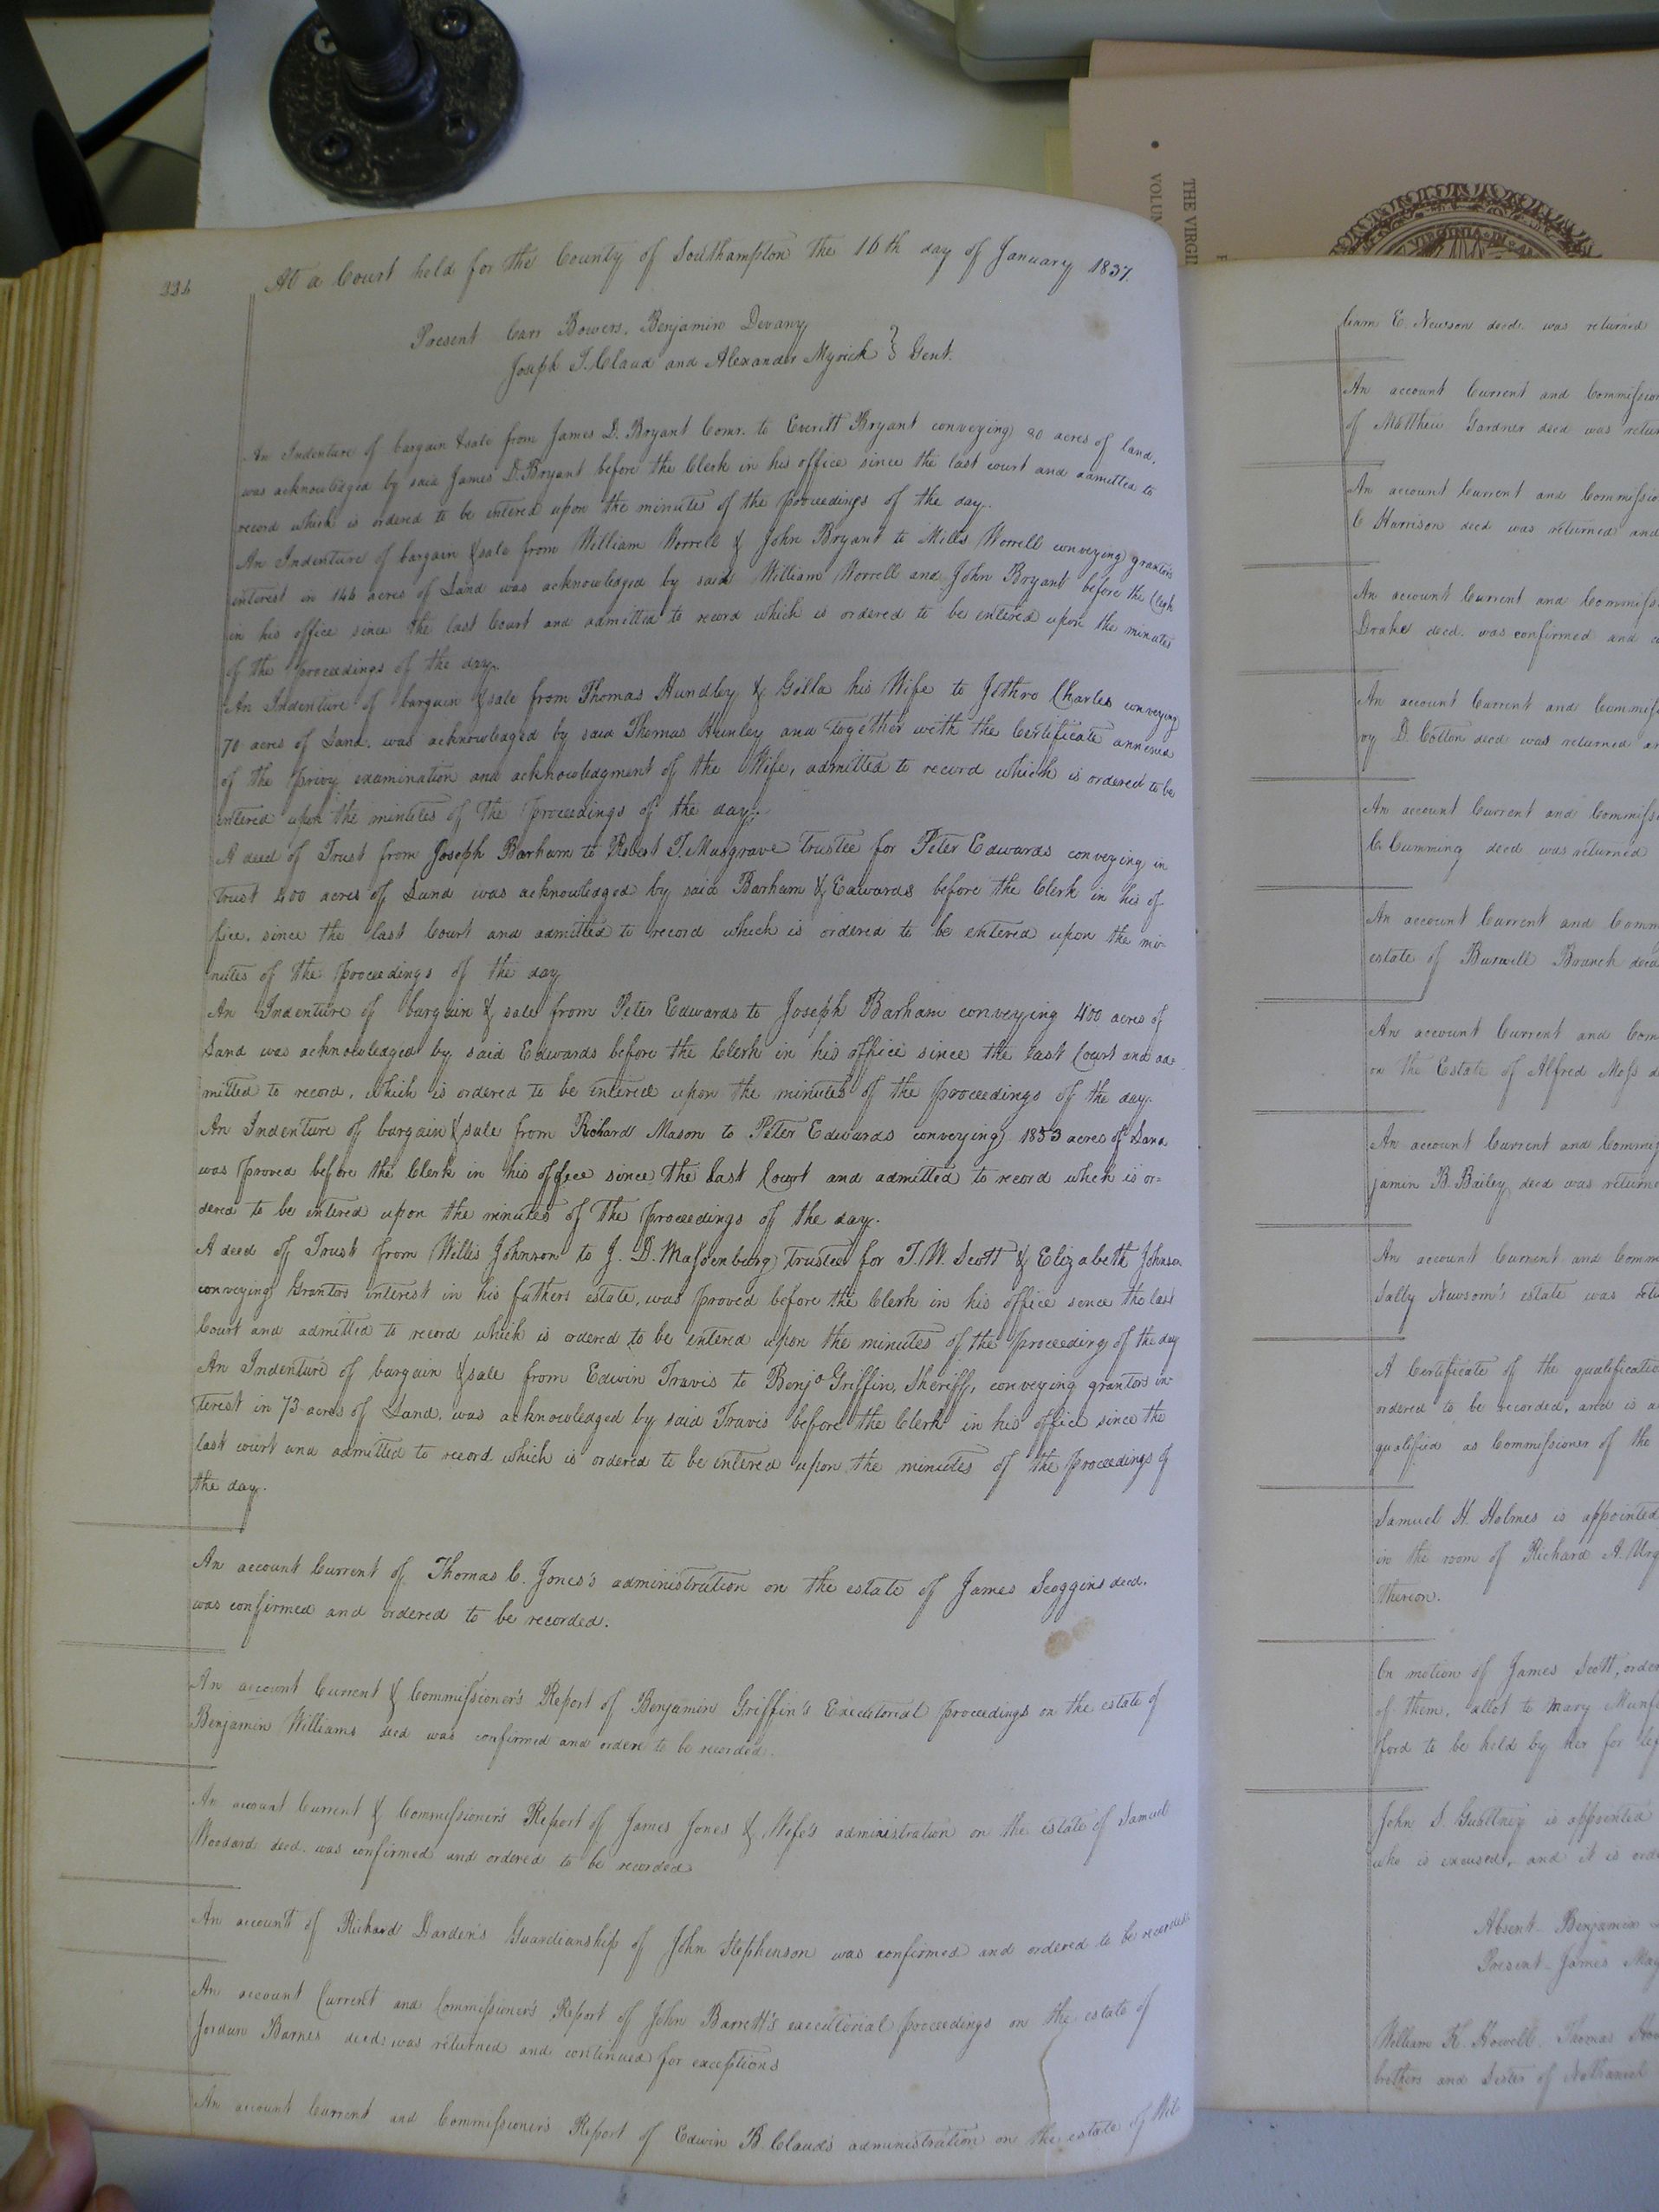 THE VIRGI
VOLUM
VIRGINIA
336
At a Court held for the County of Southampton the 16th day of January 1837.
Present Carr Bowers, Benjamin Devany
Joseph T. Claud and Alexander Myrick } Gent.
An Indenture of bargain & sale from James D. Bryant Comr. to Everitt Bryant conveying 20 acres of land,
was acknowledged by said James D. Bryant before the Clerk in his office since the last court and admitted to
record which is ordered to be entered upon the minutes of the proceedings of the day.
An Indenture of bargain & sale from William Worrell & John Bryant to Mills Worrell conveying grantors
interest in 146 acres of Land was acknowledged by said William Worrell and John Bryant before the Clerk
in his office since the last Court and admitted to record which is ordered to be entered upon the minutes
of the proceedings of the day.
An Indenture of bargain & sale from Thomas Hundley & Gilla his Wife to Jethro Charles conveying
70 acres of Land, was acknowledged by said Thomas Hunley and together with the Certificate annexed
of the privy examination and acknowledgment of the Wife, admitted to record which is ordered to be
entered upon the minutes of the proceedings of the day.
A deed of Trust from Joseph Barham to Robert T. Musgrave Trustee for Peter Edwards conveying in
trust 400 acres of Land was acknowledged by said Barham & Edwards before the Clerk in his of
fice, since the last Court and admitted to record which is ordered to be entered upon the mi-
nutes of the proceedings of the day
An Indenture of bargain & sale from Peter Edwards to Joseph Barham conveying 400 acres of
Land was acknowledged by said Edwards before the Clerk in his office since the last Court and ad=
mitted to record, which is ordered to be entered upon the minutes of the proceedings of the day.
An Indenture of bargain & sale from Richard Mason to Peter Edwards conveying 1833 acres of Land
was proved before the Clerk in his office since the last Court and admitted to record which is or=
dered to be entered upon the minutes of the proceedings of the day.
A deed of Trust from Willis Johnson to J. D. Massenburg trustee for T. W. Scott & Elizabeth Johnson
conveying Grantors interest in his fathers estate, was proved before the Clerk in his office since the last
Court and admitted to record which is ordered to be entered upon the minutes of the proceeding of the day
An Indenture of bargain & sale from Edwin Travis to Benja Griffin, Sheriff, conveying grantors in-
terest in 73 acres of Land, was acknowledged by said Travis before the Clerk in his office since the
last court and admitted to record which is ordered to be entered upon the minutes of the proceedings of
the day.
An account Current of Thomas C. Jones's administration on the estate of James Scoggins decd.
was confirmed and ordered to be recorded.
An account Current & Commissioner's Report of Benjamin Griffin's Executorial proceedings on the estate of
Benjamin Williams decd was confirmed and orderd to be recorded.
An account Current & Commissioner's Report of James Jones & Wife's administration on the estate of Samuel
Woodard decd. was confirmed and ordered to be recorded
An account of Richard Darden's Guardianship of John Stephenson was confirmed and ordered to be recorded
An account Current and Commissioner's Report of John Barrett's executorial proceedings on the estate of
Jordan Barnes decd: was returned and continued for exceptions
An account Current and Commissioner's Report of Edwin B. Claud's administration on the estate of Wil
liam E. Newsom decd. was returned
An account Current and Commission
of Matthew Gardner decd was retur
An account Current and Commissio
C Harrison decd was returned and
An account Current and Commiss
Drake decd. was confirmed and o
An account Current and Commiss
ry D. Cotton decd was returned an
An account Current and Commiss
C. Cumming decd was returned
An account Current and Comm
estate of Burwell Branch decd
An account Current and Com
on the Estate of Alfred Moss d
An account Current and Commis
jamin B. Bailey decd was returne
An account Current and Comm
Sally Newsom's estate was retu
A Certificate of the qualificatio
ordered to be recorded, and is a
qualified as Commissioner of the
Samuel H. Holmes is appointed
in the room of Richard A. Urq
thereon.
On motion of James Scott, orde
of them, allot to Mary Munf
ford to be held by her for lif
John S. Gualtney is appointed
who is excused, and it is orde
Absent - Benjamin
Present - James Mag
William H. Howell, Thomas How
brothers and Sister of Nathaniel